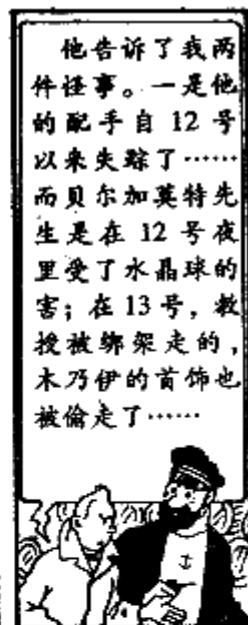 他告诉了我两
件怪事。一是他
的配手自12号
以来失踪了……
而贝尔加莫特先
生是在12号夜
里受了水晶球的
害；在13号，教
授被绑架走的，
木乃伊的首饰也
被偷走了……